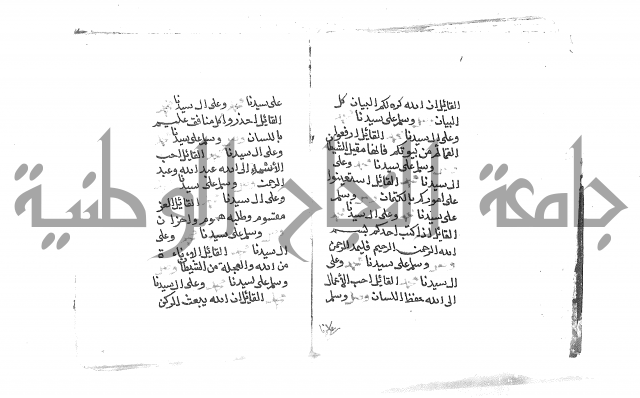 القائل ان الله كره لكم البيان كل
البيان وسلم على سيدنا
وعلى ال سيدنا القائل ارفعوا
القمامة من بيوتكم فانها مقيل الشيطا
وسلم على سيدنا وعلى
ال سيدنا القائل استعينوا
على اموركم بالكتمان وسلم
على سيدنا وعلى ال سيدنا
القائل اذا كتب احدكم بسم
الله الرحمن الرحيم فليمد الرحمن
وسلم على سيدنا وعلى
ال سيدنا القائل احب الأعمال
الى الله حفظ اللسان وسلم
على سيدنا وعلى ال سيدنا
القائل احذروا كل منافق عليم
باللسان وسلم على سيدنا
وعلى ال سيدنا القائل احب
الأسماء الى الله عبد الله وعبد
الرحمن وسلم على سيدنا
وعلى ال سيدنا القائل
مقسوم وطلبه هموم واحزان
وسلم على سيدنا وعلى
ال سيدنا القائل
من الله والعجلة من الشيطان
وسلم على سيدنا وعلى ال سيدنا
القائل ان الله يبعث
جامعة النجاح الوطنية